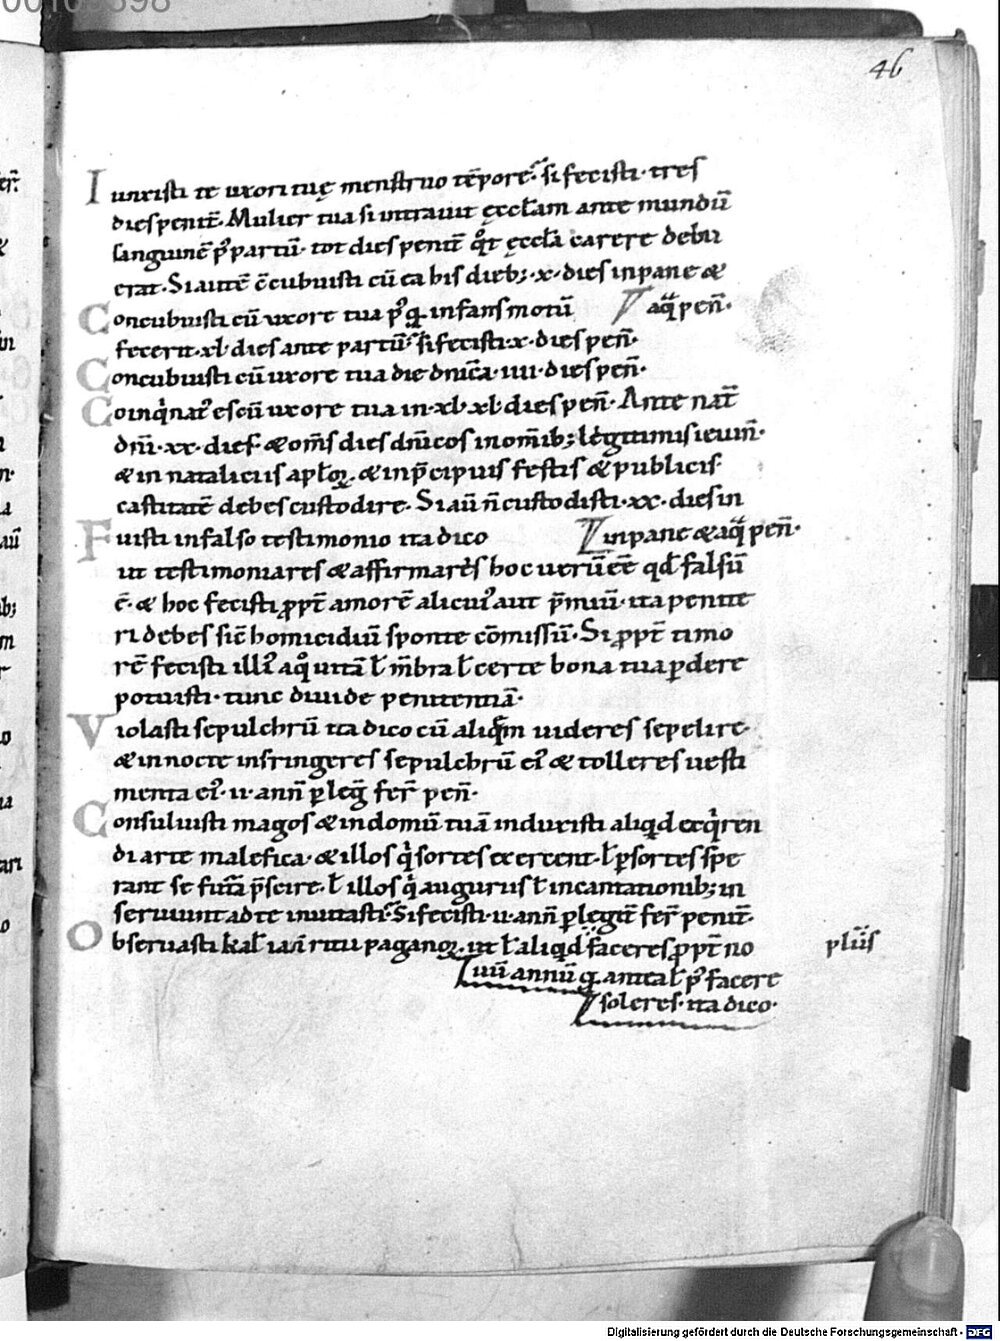 46
Iunxisti te uxori tuę menstruo tēpore. si fecisti. tres
dies penit̄. Mulier tua si intrauit ęcclam ante mundū
sanguinē p᷒ partū. tot dies penit̄ qͦt ęcclā carere debu
erat. Si autē c̄cubuisti cū ea his dieb; .x. dies in pane &
Concubuisti cū uxore tua p᷒q infans motū aq̄ pen̄.
fecerit. xl dies ante partū. si fecisti .x. dies pen̄.
Concubuisti cū uxore tua die dn̄ica. iiii. dies pen̄.
Coinqͥnat᷒ es cū uxore tua in .xl. xl dies pen̄. Ante nat̄
dn̄i .xx. dies. & om̄s dies dn̄icos in om̄ib; legittimis ieiun̄.
& in nataliciis aplōꝝ. & in p̄cipuis festis & publicis
castitatē debes custodire. Si aū n̄ custodisti .xx. dies in
Fuisti in falso testimonio ita dico in pane & aq̄ pen̄.
ut testimoniares & affirmares hoc uerū ēē qd̄ falsū
ē. & hoc fecisti ꝓpt̄ amorē alicui᷒ aut p̄miū. ita penite
ri debes sic̄ homicidiū sponte cōmissū. Si ꝓpt̄ timo
rē fecisti illi᷒ a qͦ uitā ł m̄bra ł certe bona tua ꝑdere
potuisti. tunc diuide penitentiā.
Violasti sepulchrū ita dico cū aliquē uideres sepelire
& in nocte infringeres sepulchrū ei᷒ & tolleres uesti
menta ei᷒. ii. ann̄ ꝑ leḡ fer̄ pen̄.
Consuluisti magos & in domū tuā induxisti aliqd exqͥren
di arte malefica. & illos qͥ sortes exercent. ł ꝑ sortes spe
rant se futā p̄scire. ł illos qͥ auguriis ł incantationib; in
seruiunt ad te inuitasti. Si fecisti .ii. ann̄ ꝑ legit̄ fer̄ penit̄.
Obseruasti kal ian̄ ritu paganoꝝ. ut ł aliqd faceres ꝓpt̄ no plus
uū annū q antea ł p᷒ facere
soleres. ita dico.
Digitalisierung gefördert durch die Deutsche Forschungsgemeinschaft - DFG